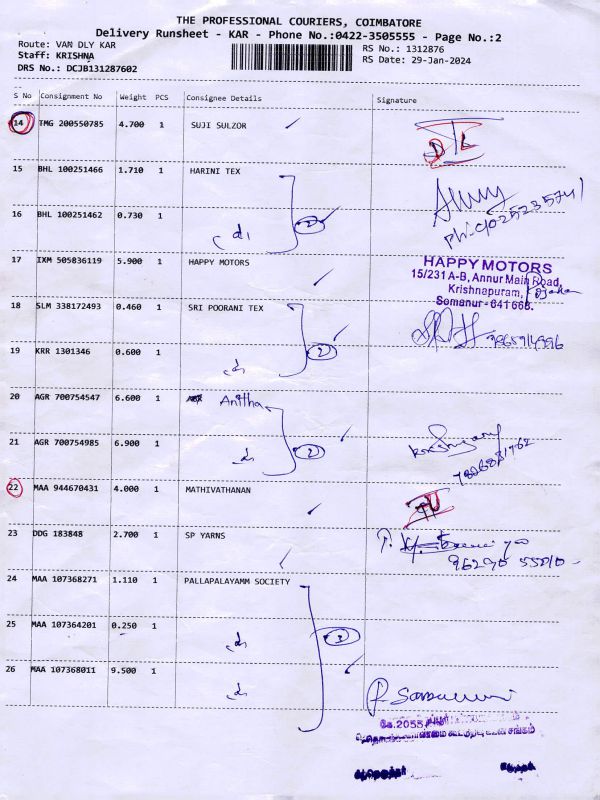 THE PROFESSIONAL COURIERS, COIMBATORE
Delivery Runsheet - KAR - Phone No.:0422-3505555 - Page No.:2
Route: VAN DLY KAR
RS No.: 1312876
Staff: KRISHNA
RS Date: 29-Jan-2024
DRS No.: DCJB131287602
S No Consignment No Weight PCS Consignee Details Signature
14 TMG 200550785 4.700 1 SUJI SULZOR
15 BHL 100251466 1.710 1 HARINI TEX
16 BHL 100251462 0.730 1 2
17 IXM 505836119 5.900 1 HAPPY MOTORS
HAPPY MOTORS
15/231 A-B, Annur Main Road,
Krishnapuram,
Somanur - 641 668.
18 SLM 338172493 0.460 1 SRI POORANI TEX
19 KRR 1301346 0.600 1 2
20 AGR 700754547 6.600 1 Anitha
21 AGR 700754985 6.900 1 2
22 MAA 944670431 4.000 1 MATHIVATHANAN
23 DDG 183848 2.700 1 SP YARNS
24 MAA 107368271 1.110 1 PALLAPALAYAMM SOCIETY
25 MAA 107364201 0.250 1 3
26 MAA 107368011 9.500 1